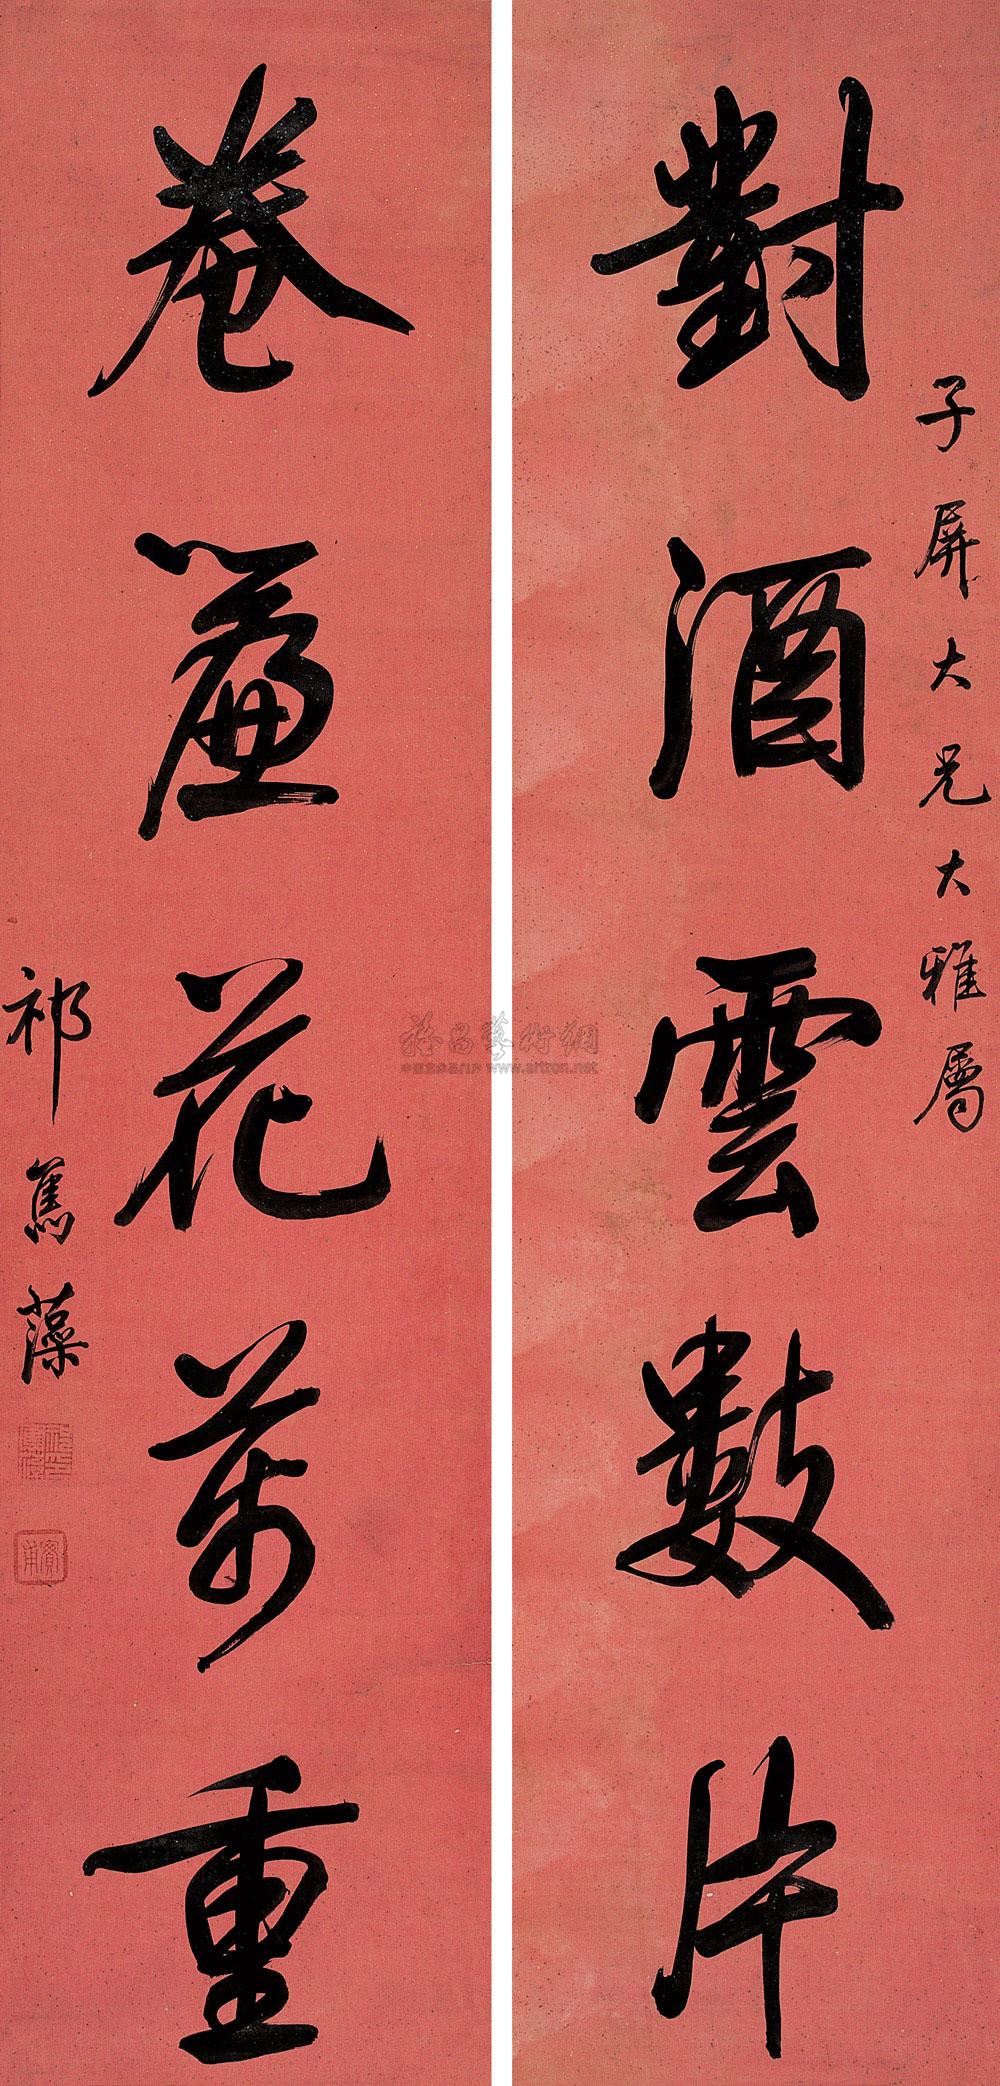 子屏大兄大雅屬
對酒雲數片
卷簾花萬重
祁寯藻
www.artron.net